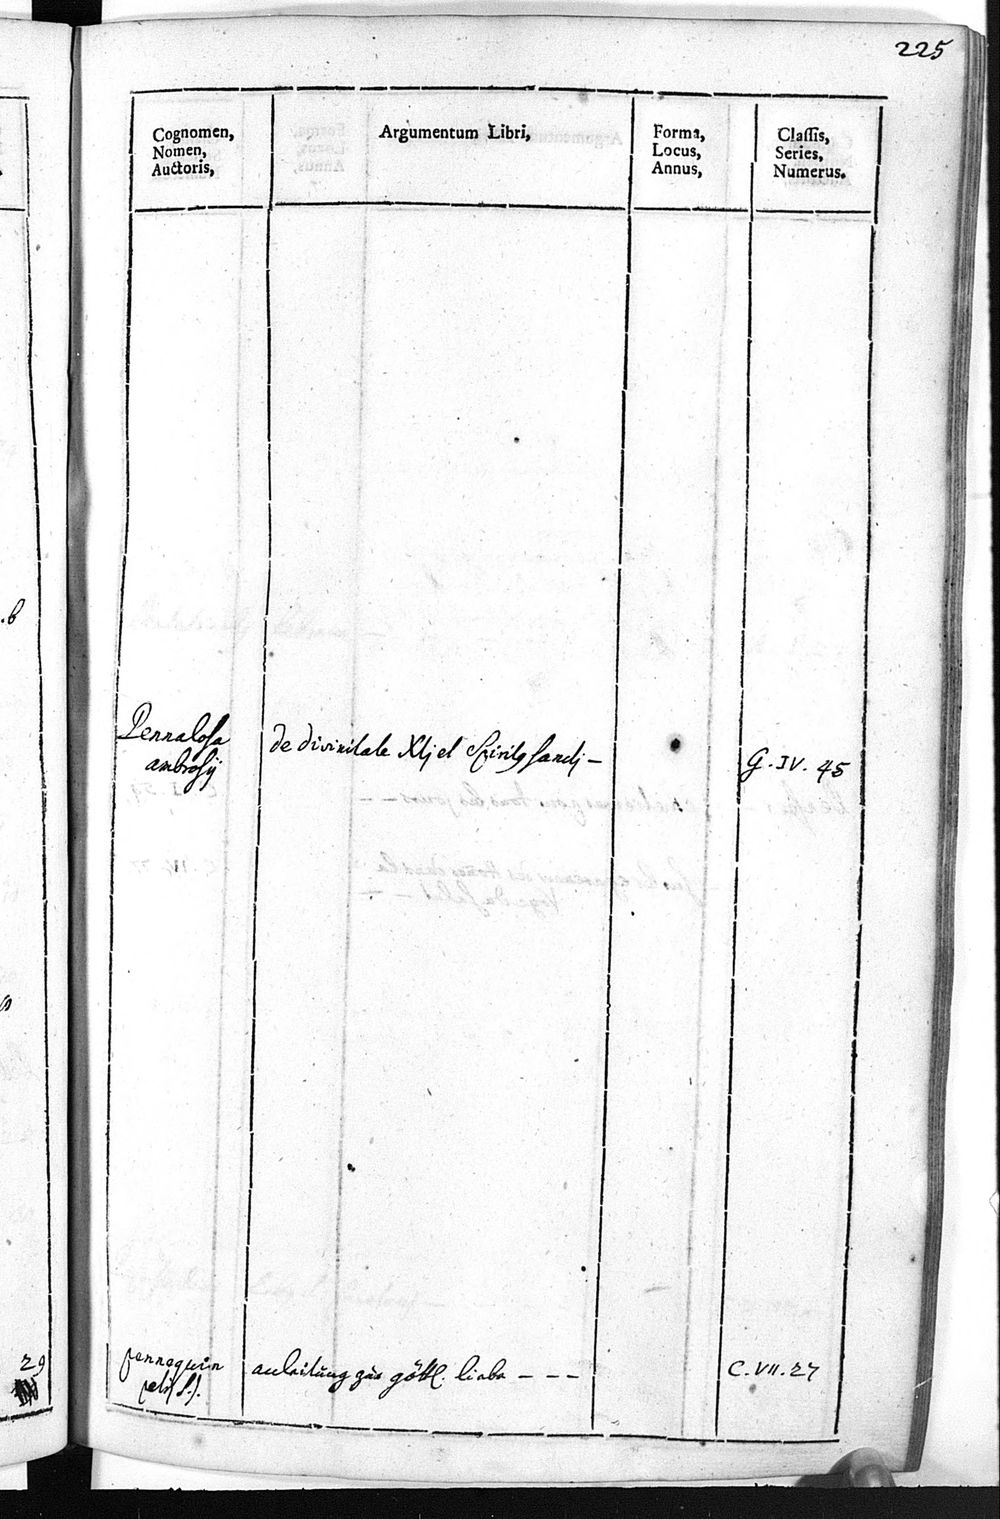 225
Cognomen,
Nomen,
Auctoris,
Argumentum Libri,
Forma,
Locus,
Annus,
Classis,
Series,
Numerus.
Pennalosa
ambrosij
de divinitate Xtj et Spiritq sanctj –
G. IV. 45
29
pennequin
petr
anleitung zur göttl. liebe - - -
C. VII. 27